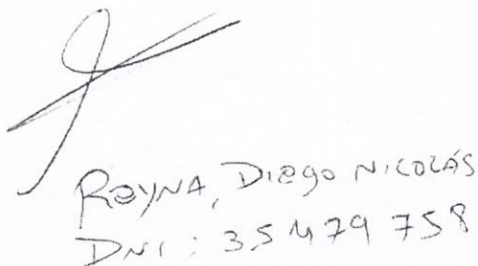 Reyna, Diego Nicolás
DNI: 35479758